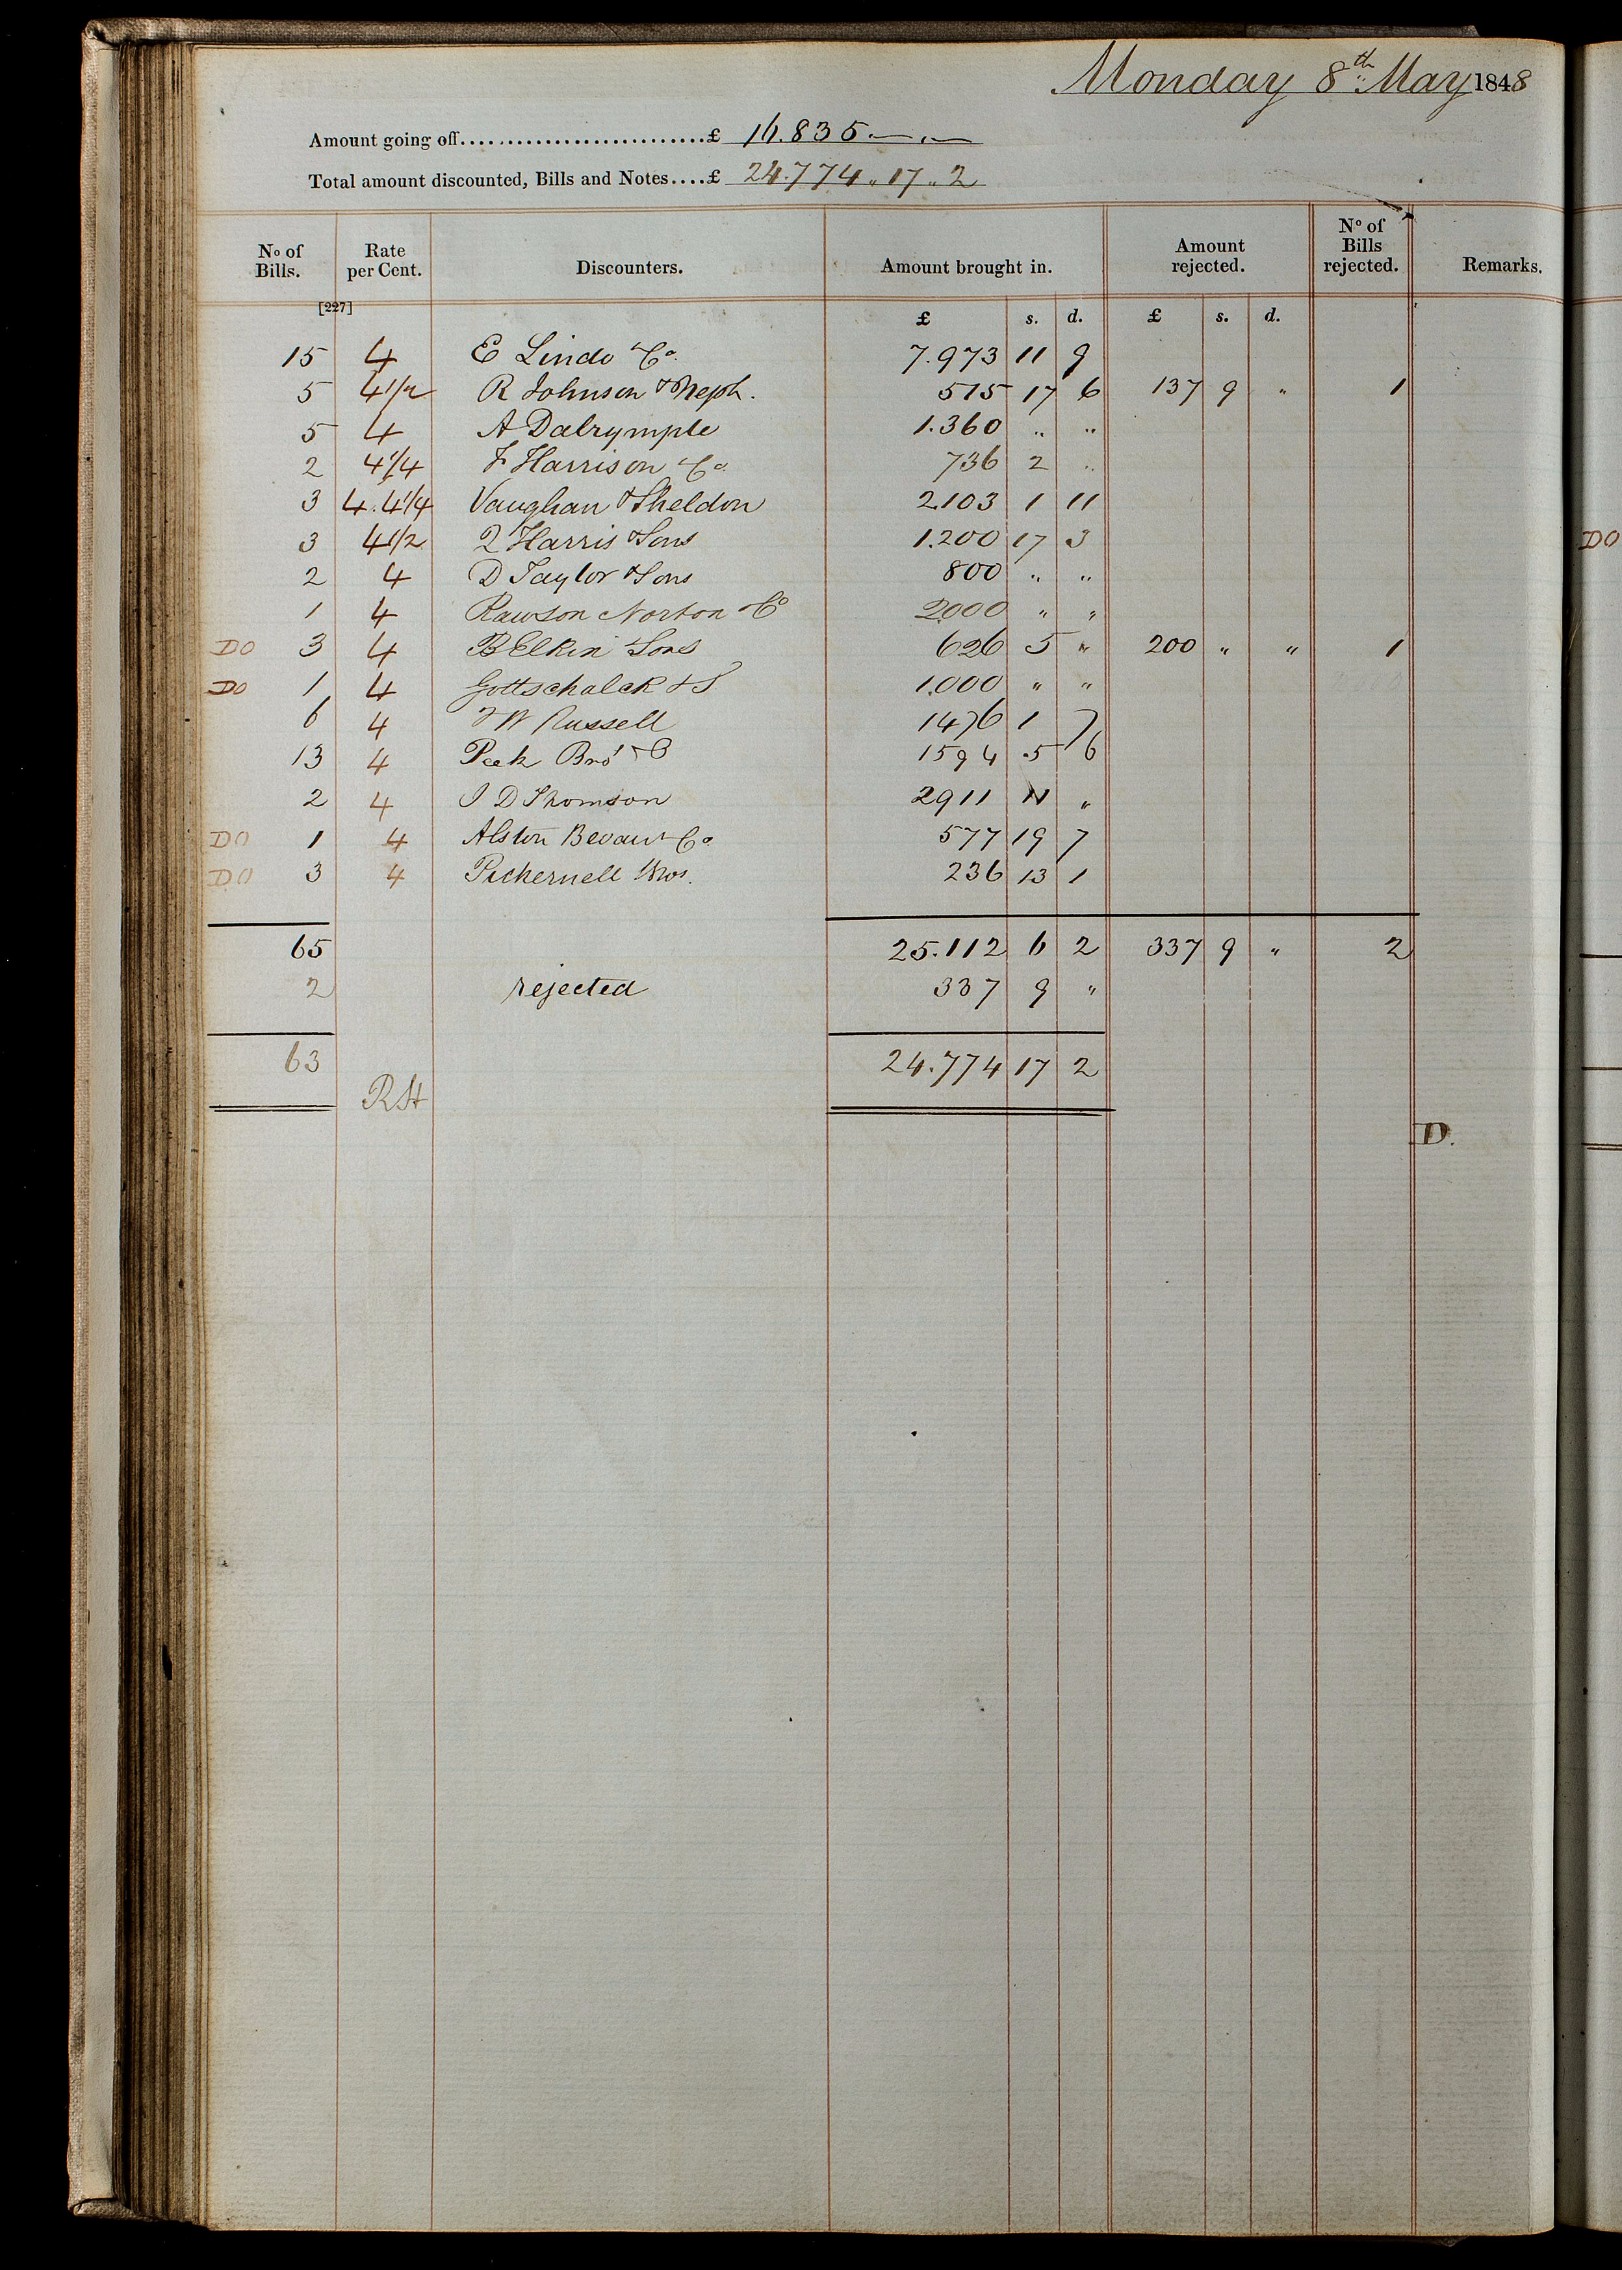 Monday 8th May 1848
Amount going off..........................£ 16.835 — . —
Total amount discounted, Bills and Notes....£ 24.774 " 17 " 2
No of Bills. Rate per Cent. Discounters. Amount brought in. Amount rejected. No of Bills rejected. Remarks.
[227]
£ s. d. £ s. d.
15 4 E Lindo & Co. 7.973 11 9
5 4 1/2 R Johnson & Neph. 515 17 6 137 9 " 1
5 4 A Dalrymple 1.360 " "
2 4 1/4 F Harrison & Co. 736 2 "
3 4. 4 1/4 Vaughan & Sheldon 2103 1 11
3 4 1/2 Q Harris & Sons 1.200 17 3
DO
2 4 D Taylor & Sons 800 " "
1 4 Rawson Norton & Co 2000 " "
DO 3 4 B Elkin & Sons 626 5 " 200 " " 1
DO 1 4 Gottschalck & S 1.000 " "
6 4 J W Russell 1476 1 7
13 4 Peek Bros & C 1594 5 6
2 4 J D Thomson 2911 11 "
DO 1 4 Alston Bevan & Co 577 19 7
DO 3 4 Pickernell Bros. 236 13 1
65 25.112 6 2 337 9 " 2
2 rejected 337 9 "
63 24.774 17 2
RH
D.